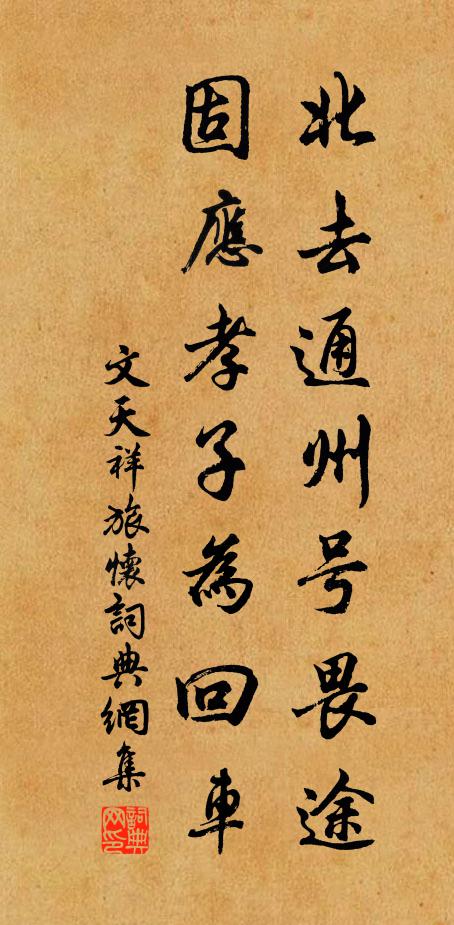 北去通州号畏途
固應孝子為回車
文天祥旅懷詞典網集
詞典网印